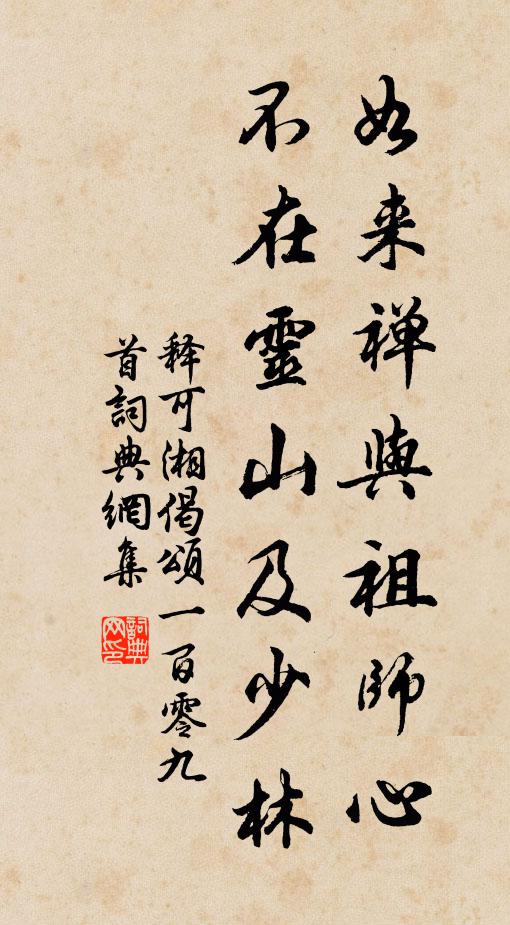 如来禅與祖師心
不在靈山及少林
释可湘偈頌一百零九
首詞典網集
詞典网印